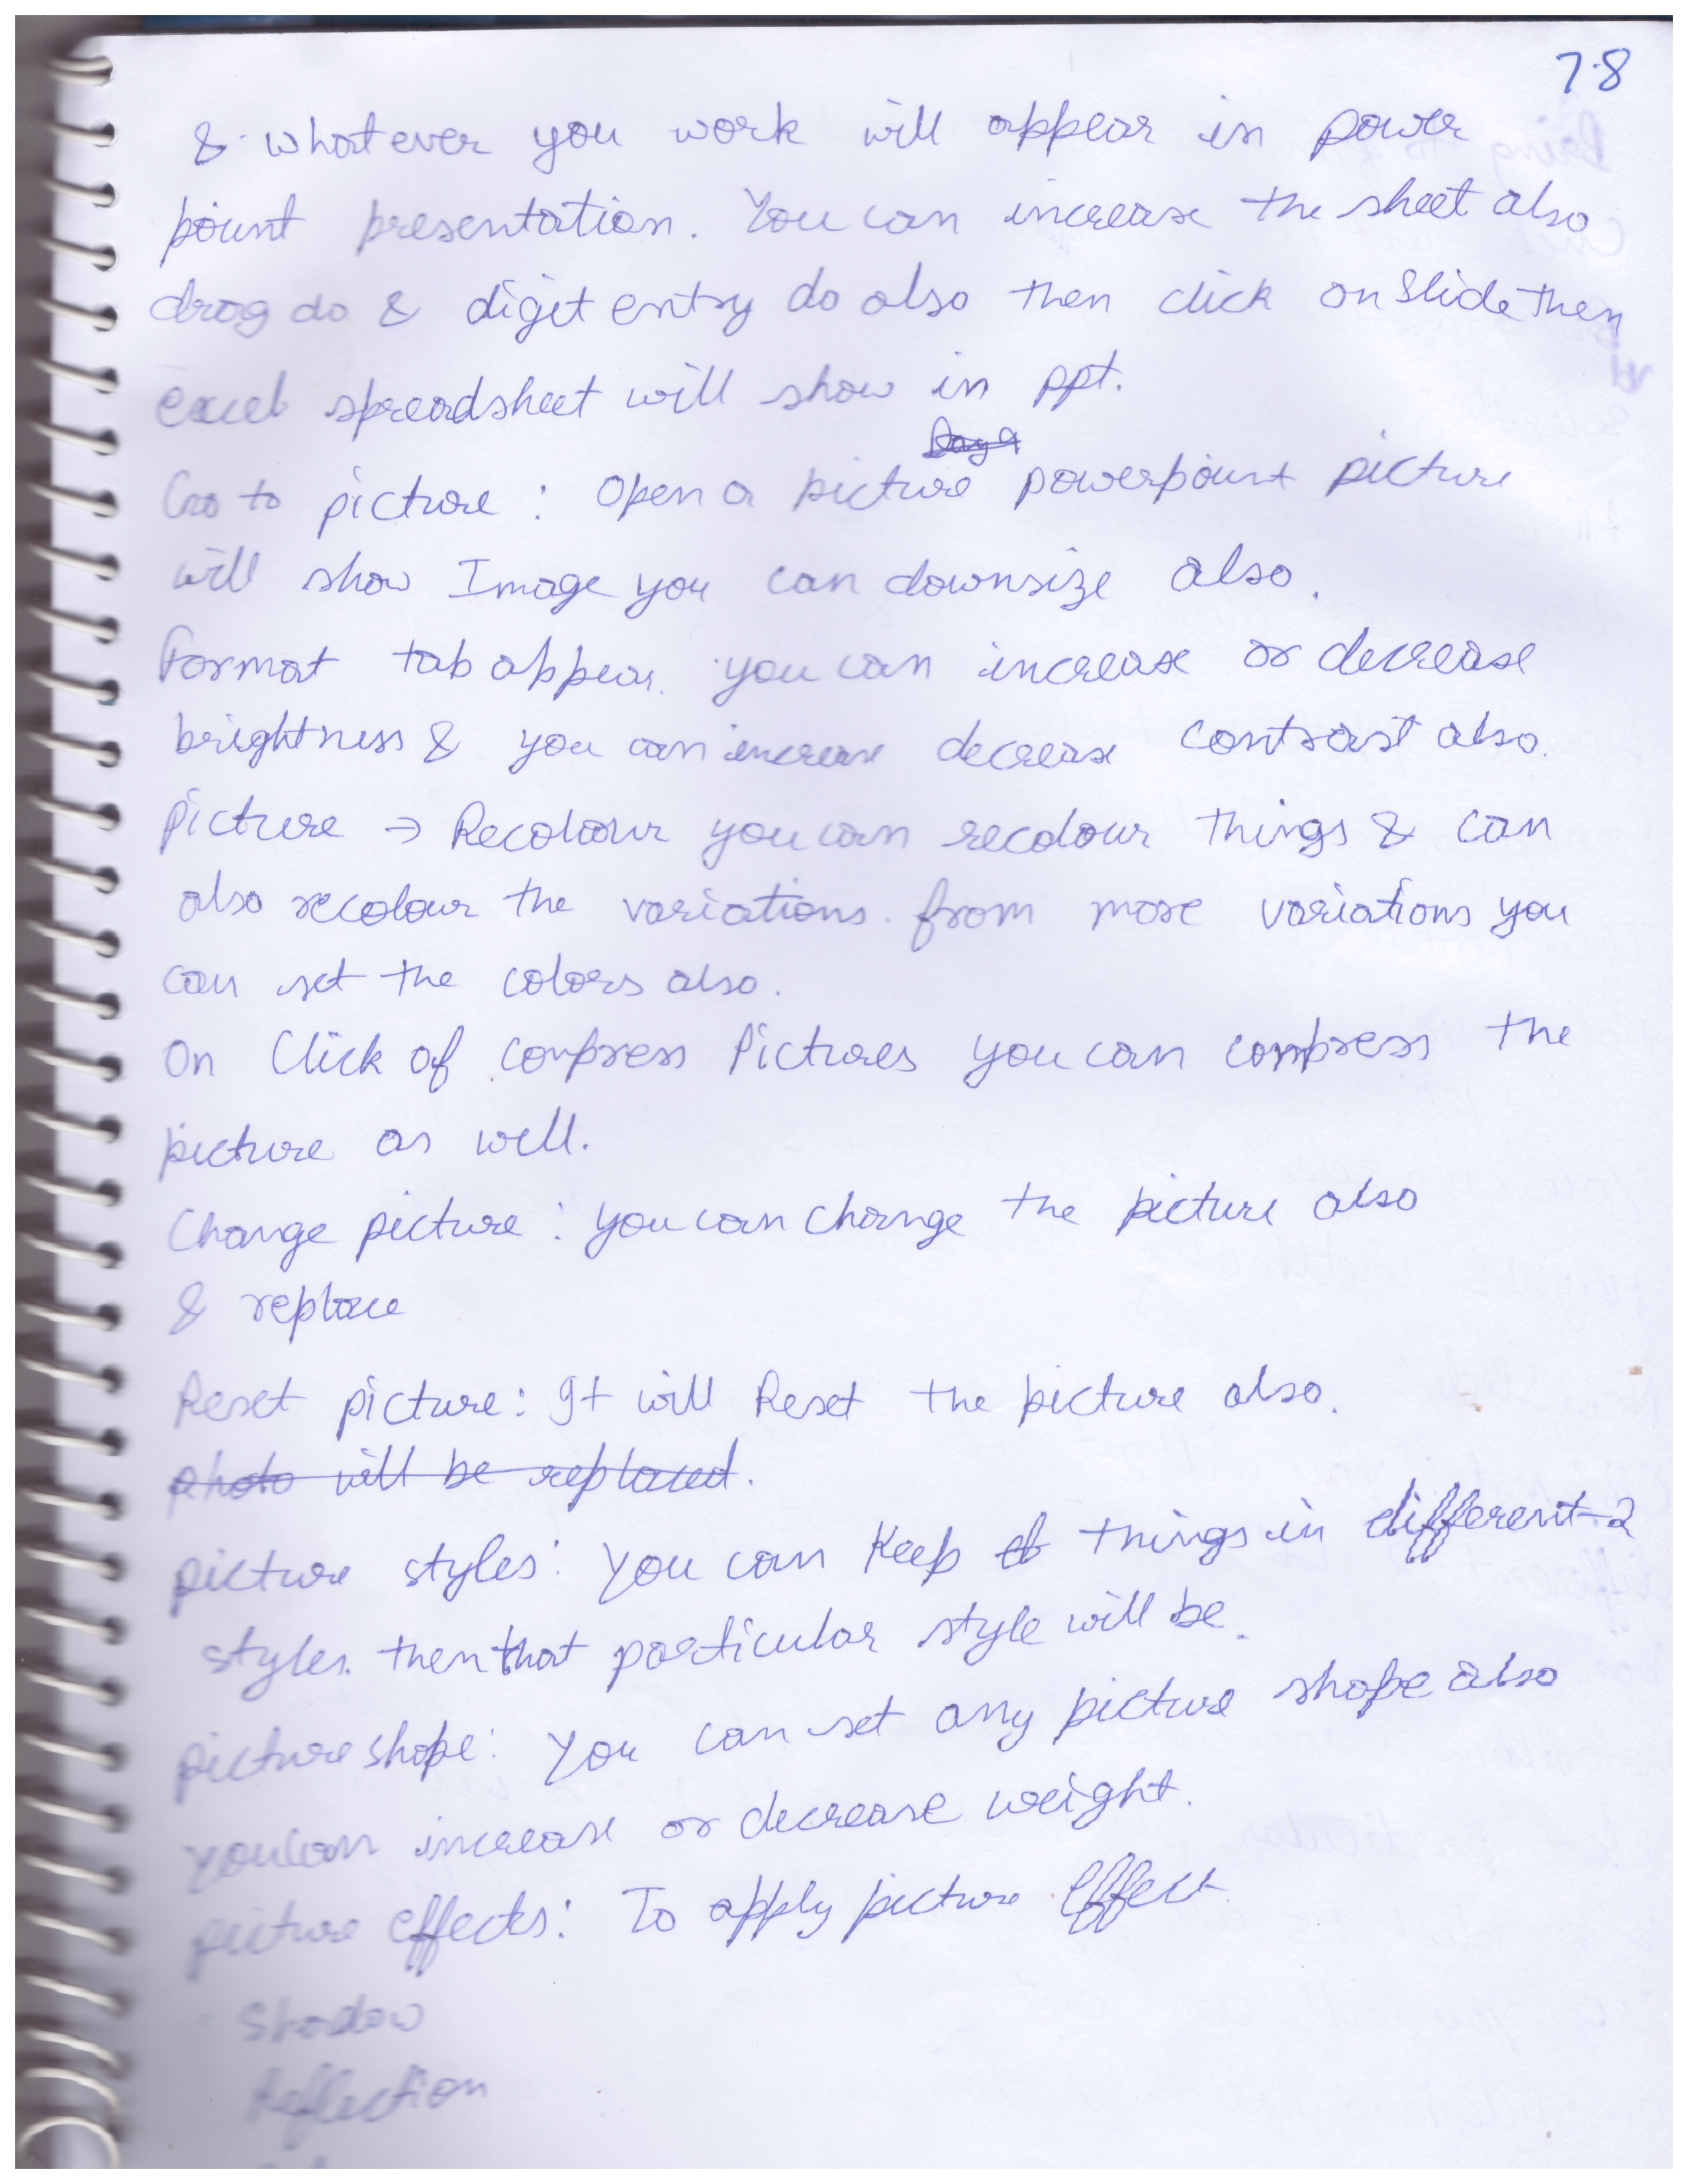 7.8
& whatever you work will appear in power
point presentation. You can increase the sheet also
drag do & digit entry do also then click on Slide then
excel spreadsheet will show in ppt.
Go to picture : Open a picture powerpoint picture
will show Image you can downsize also.
Format tab appear. you can increase or decrease
brightness & you can increase decrease contrast also.
Picture → Recolour you can recolour things & can
also recolour the variations. from more variations you
can set the colors also.
On Click of compress Pictures you can compress the
picture as well.
Change picture : you can change the picture also
& replace
Reset picture : It will Reset the picture also.
photo will be replaced.
picture styles : You can Keep things in different-2
styles. then that particular style will be.
picture shape : You can set any picture shape also
you can increase or decrease weight.
picture effects : To apply picture Effect
Shadow
Reflection